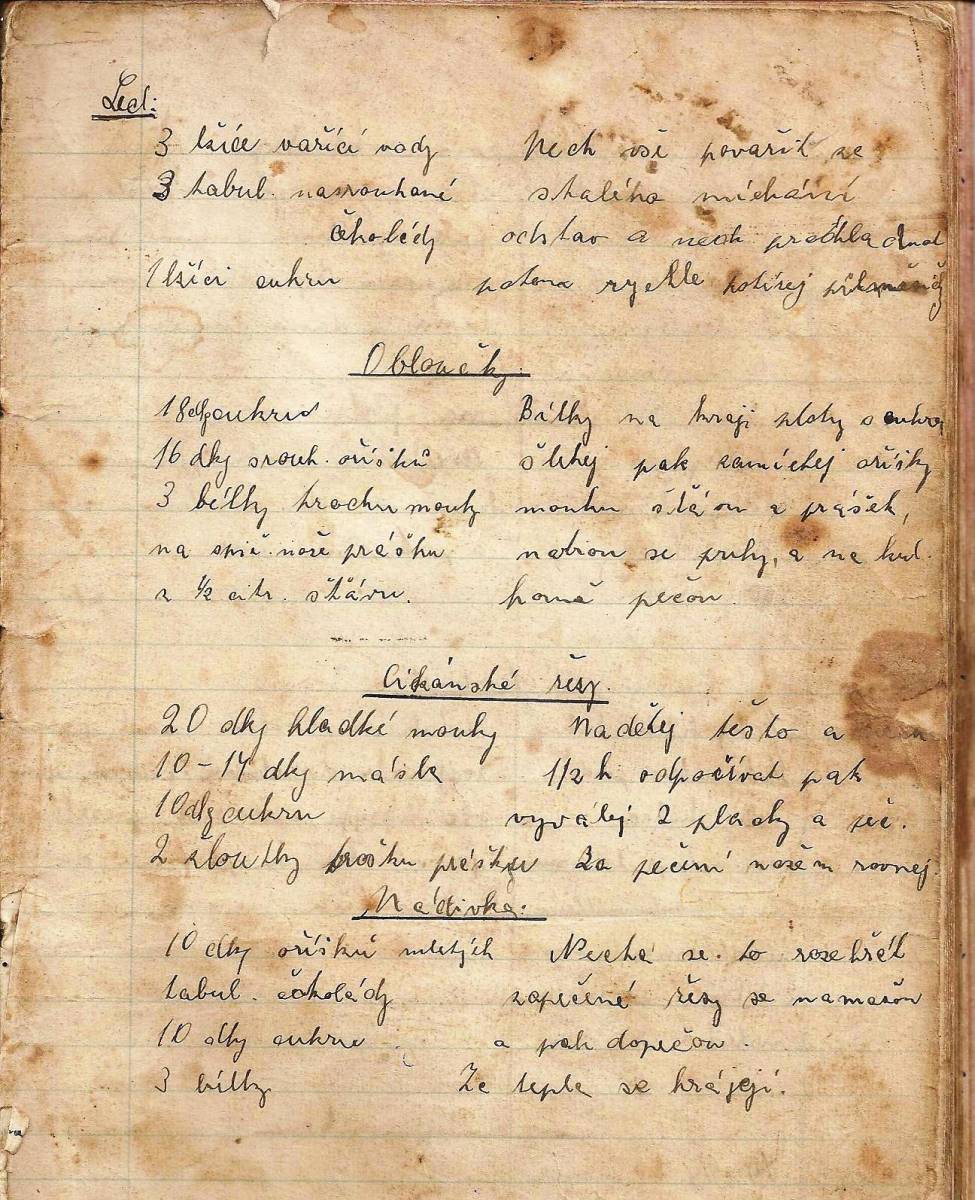 Led:
3 lžíce vařící vody
3 tabul. nastrouhané
čholédy
1 lžíci cukru
Nech vše povařit ze
stalého míchání
odstav a nech prochladnout
potom rychle potírej
Obloučky.
18 dkg cukru
16 dkg srouh. oříšků
3 bílky trochu mouky
na spič. nože prášku
a 1/2 citr. šťávu.
Bílky na kraji plotny s cukrem
šlehej pak zamíchej oříšky
mouku šťávu a prášek,
natrou se pruhy, a na
horné pečou
Cikánské řezy.
20 dkg hladké mouky
10-14 dkg másla
10 dkg cukru
2 žloutky trošku prášku
Nadělej těsto a
1/2 h odpočívat pak
vyválej 2 placky a peč.
Za pečení nožem rovnej.
Nádivka:
10 dkg oříšků mletých
tabul. čokolády
10 dkg cukru
3 bílky
Nechá se to rozehřát
zapečené řezy se namažou
a pak dopečou.
Ze tepla se krájejí.